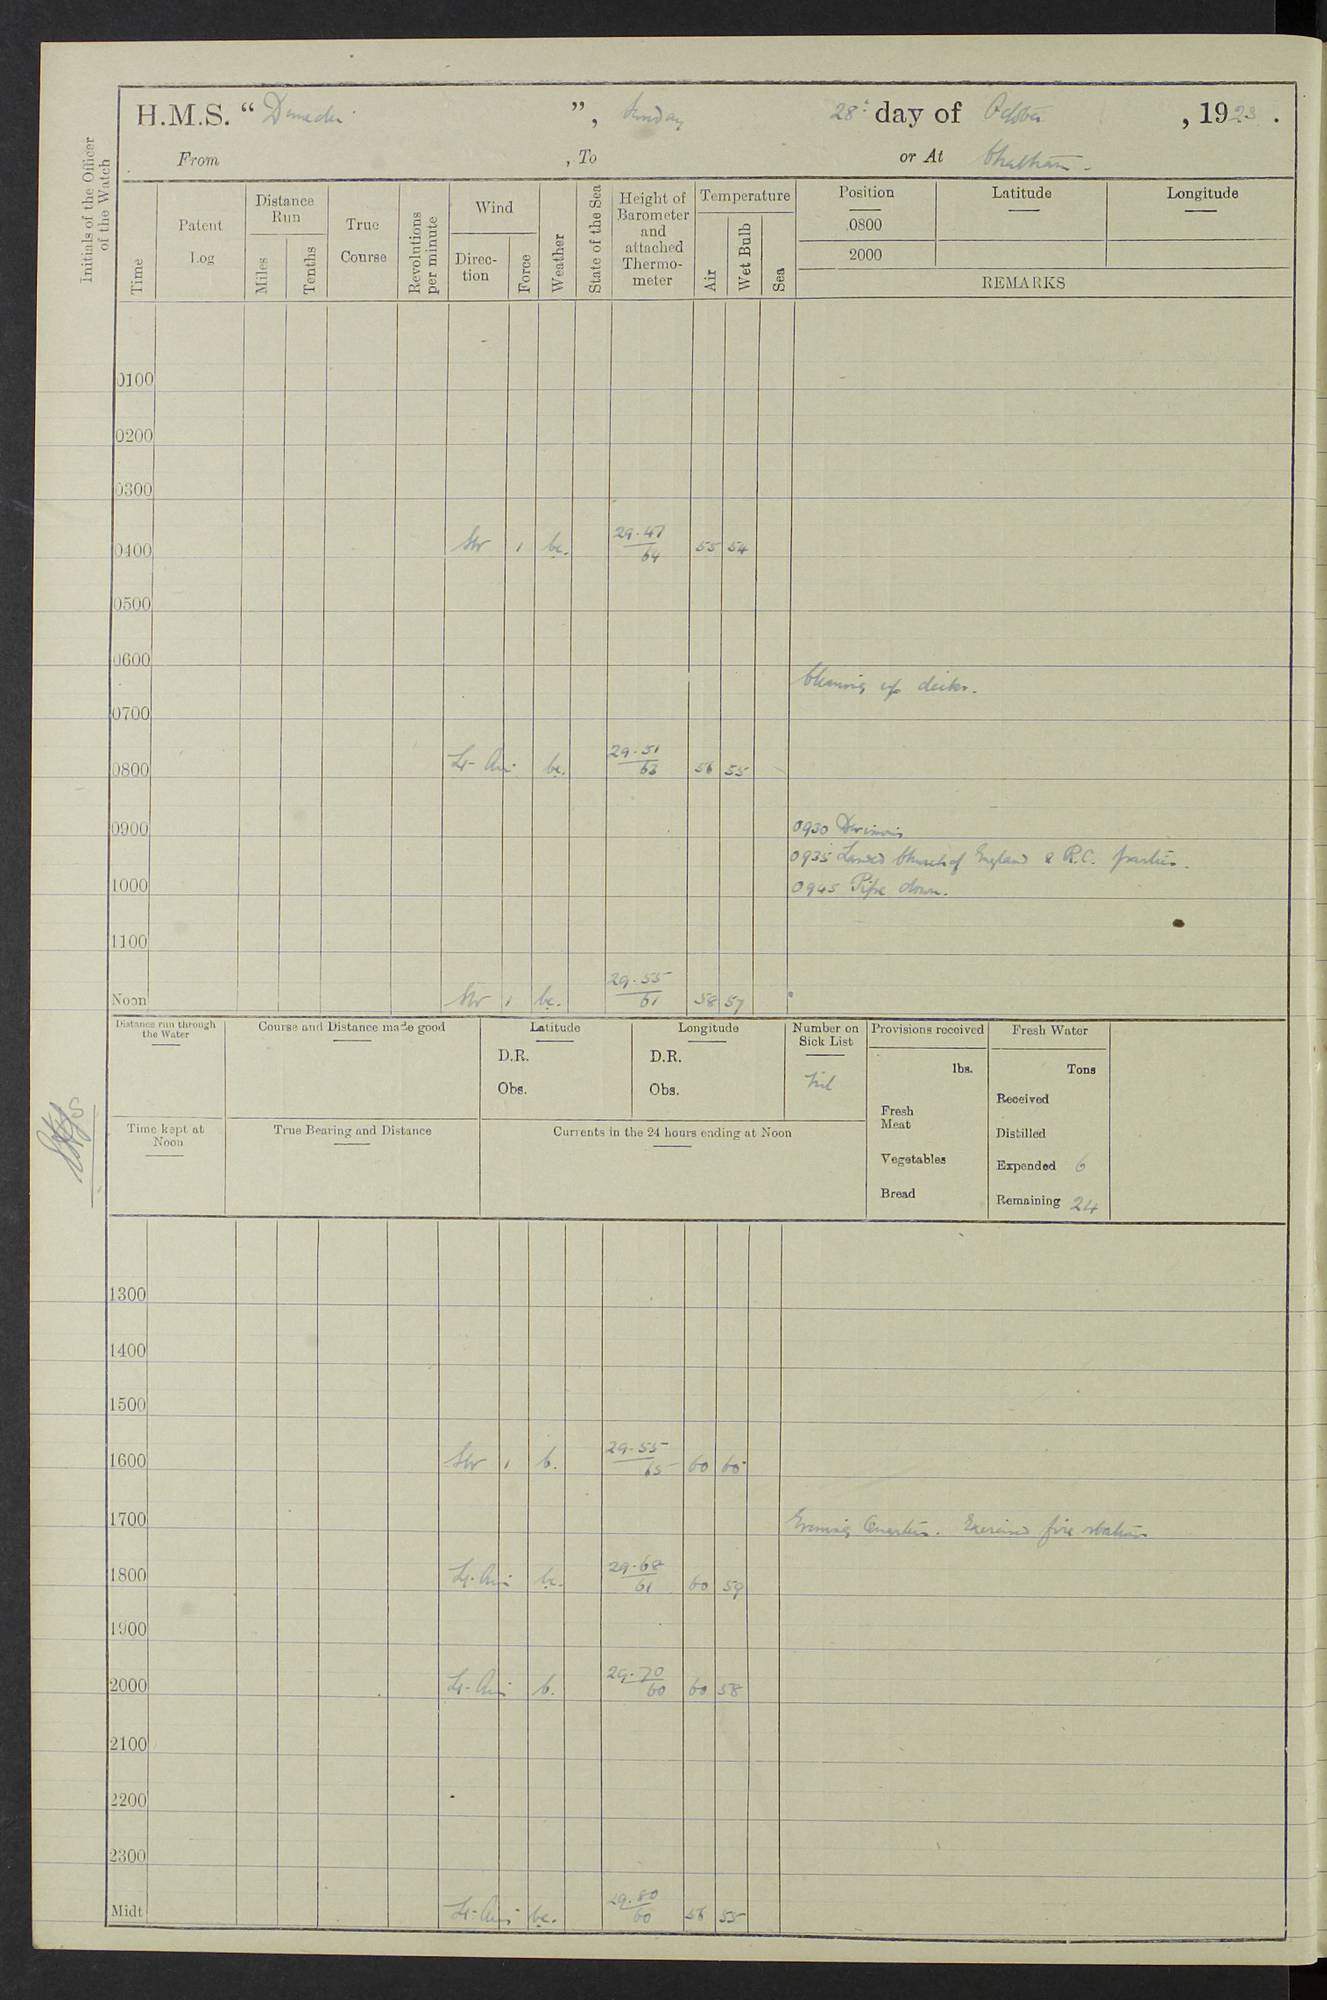 H.M.S. “ Dunedin ”, Sunday 28th day of October, 1923.
From , To or At Chatham.
Initials of the Officer of the Watch
Time
Patent Log
Distance Run
Miles
Tenths
True Course
Revolutions per minute
Wind
Direction
Force
Weather
State of the Sea
Height of Barometer and attached Thermometer
Temperature
Air
Wet Bulb
Sea
Position Latitude Longitude
0800
2000
REMARKS
0100
0200
0300
0400 SW 1 bc. 29.47 / 64 55 54
0500
0600
Cleaning up decks.
0700
0800 Lt. Air bc. 29.51 / 63 56 55
0900
0930 Divisions
0935 Landed Church of England & R.C. parties.
1000 0945 Pipe down.
1100
Noon SW 1 bc. 29.55 / 61 58 57
Distance run through the Water
Course and Distance made good
Latitude
D.R.
Obs.
Longitude
D.R.
Obs.
Number on Sick List
Nil
Provisions received
lbs.
Fresh Meat
Vegetables
Bread
Fresh Water
Tons
Received
Distilled
Expended 6
Remaining 24
Time kept at Noon
True Bearing and Distance
Currents in the 24 hours ending at Noon
1300
1400
1500
1600 SW 1 b. 29.55 / 65 60 60
1700 Evening Quarters. Exercised fire stations
1800 Lt. Air bc. 29.68 / 61 60 59
1900
2000 Lt. Air b. 29.70 / 60 60 58
2100
2200
2300
Midt Lt. Air bc. 29.80 / 60 56 55